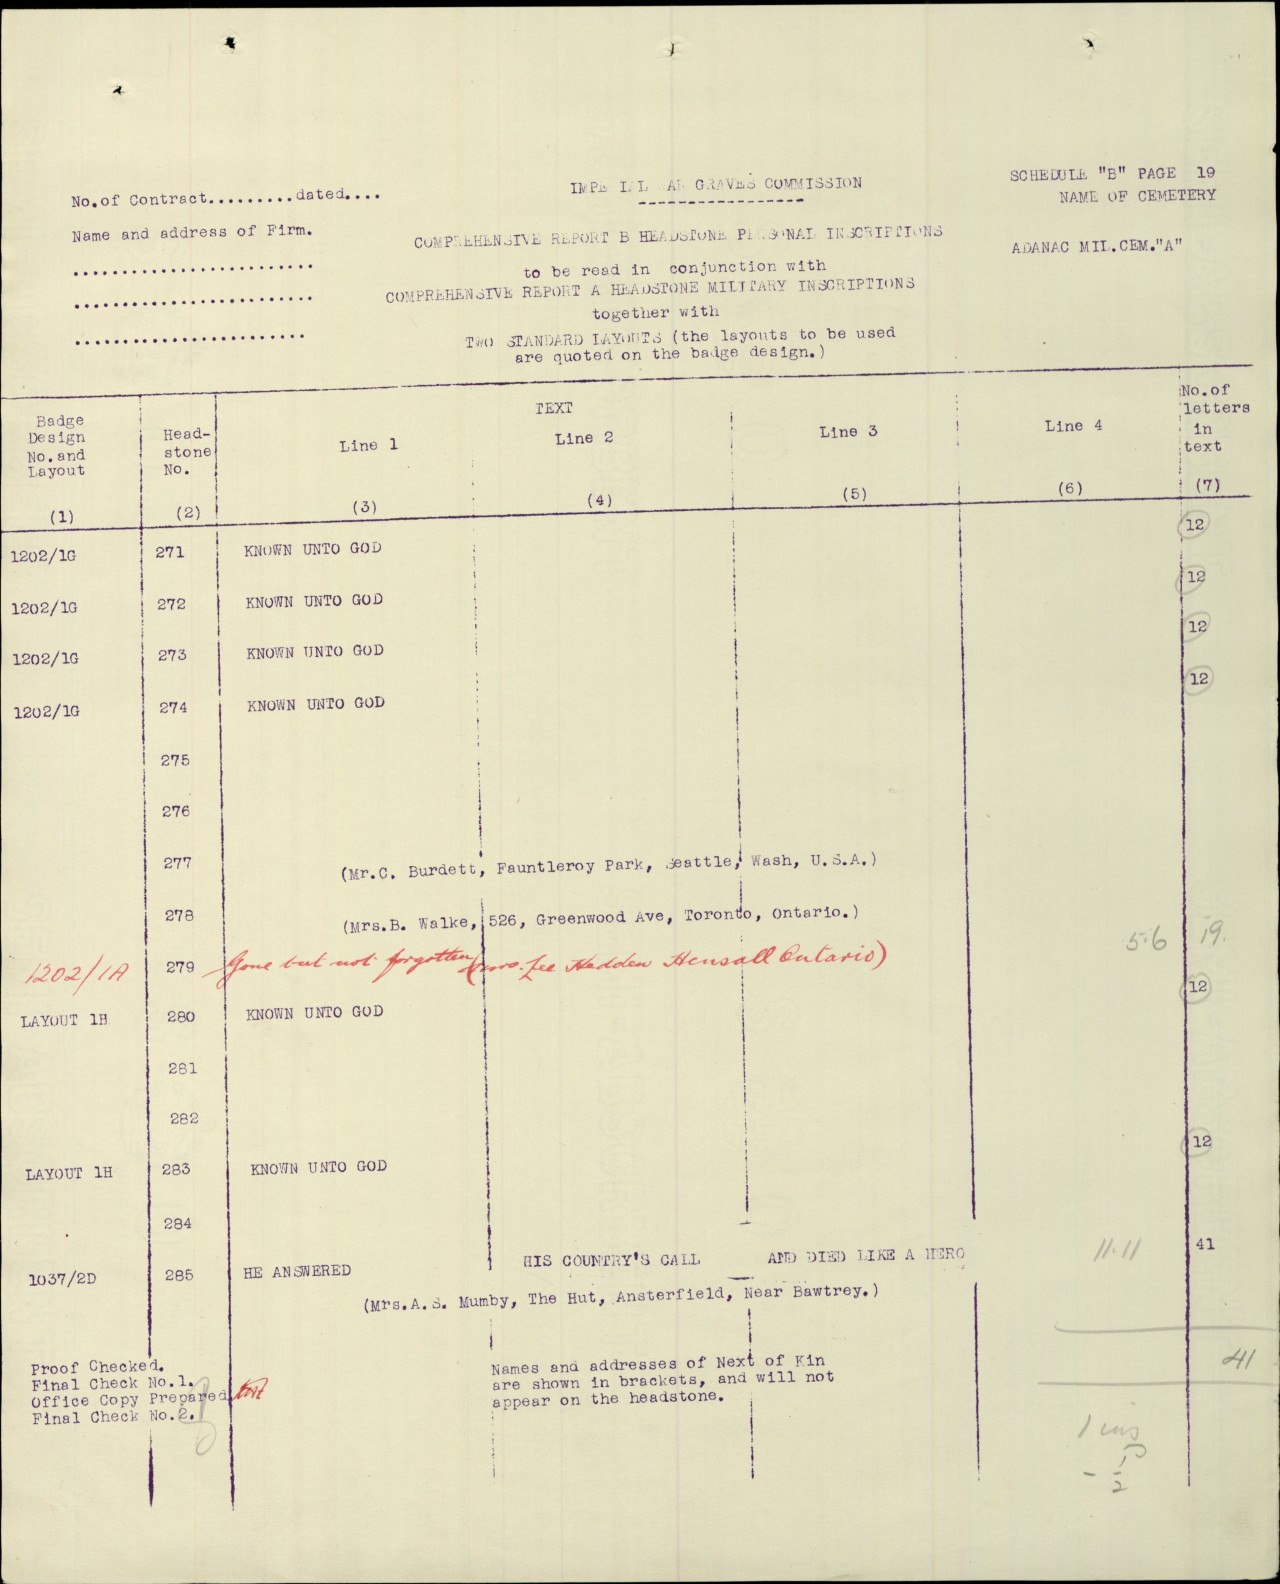 SCHEDULE "B" PAGE 19
NAME OF CEMETERY
ADANAC MIL.CEM."A"
No.of Contract.........dated....
Name and address of Firm.
.........................
.........................
........................
IMPE I L AR GRAVES COMMISSION
-----------------
COMPREHENSIVE REPORT B HEADSTONE PERSONAL INSCRIPTIONS
to be read in conjunction with
COMPREHENSIVE REPORT A HEADSTONE MILITARY INSCRIPTIONS
together with
TWO STANDARD LAYOUTS (the layouts to be used
are quoted on the badge design.)
Badge Design No.and Layout
Head-stone No.
TEXT
Line 1 Line 2 Line 3 Line 4
No.of letters in text
(1) (2) (3) (4) (5) (6) (7)
1202/1G 271 KNOWN UNTO GOD 12
1202/1G 272 KNOWN UNTO GOD 12
1202/1G 273 KNOWN UNTO GOD 12
1202/1G 274 KNOWN UNTO GOD 12
275
276
277 (Mr.C. Burdett, Fauntleroy Park, Seattle, Wash, U.S.A.)
278 (Mrs.B. Walke, 526, Greenwood Ave, Toronto, Ontario.)
1202/1A 279 Gone but not forgotten (Mrs. Lee Hedden Hensall Ontario) 5.6 19.
LAYOUT 1H 280 KNOWN UNTO GOD 12
281
282
LAYOUT 1H 283 KNOWN UNTO GOD 12
284
1037/2D 285 HE ANSWERED HIS COUNTRY'S CALL AND DIED LIKE A HERO 11.11 41
(Mrs.A.S. Mumby, The Hut, Ansterfield, Near Bawtrey.)
41
Proof Checked.
Final Check No.1.
Office Copy Prepared
Final Check No.2.
Names and addresses of Next of Kin
are shown in brackets, and will not
appear on the headstone.
1 ins